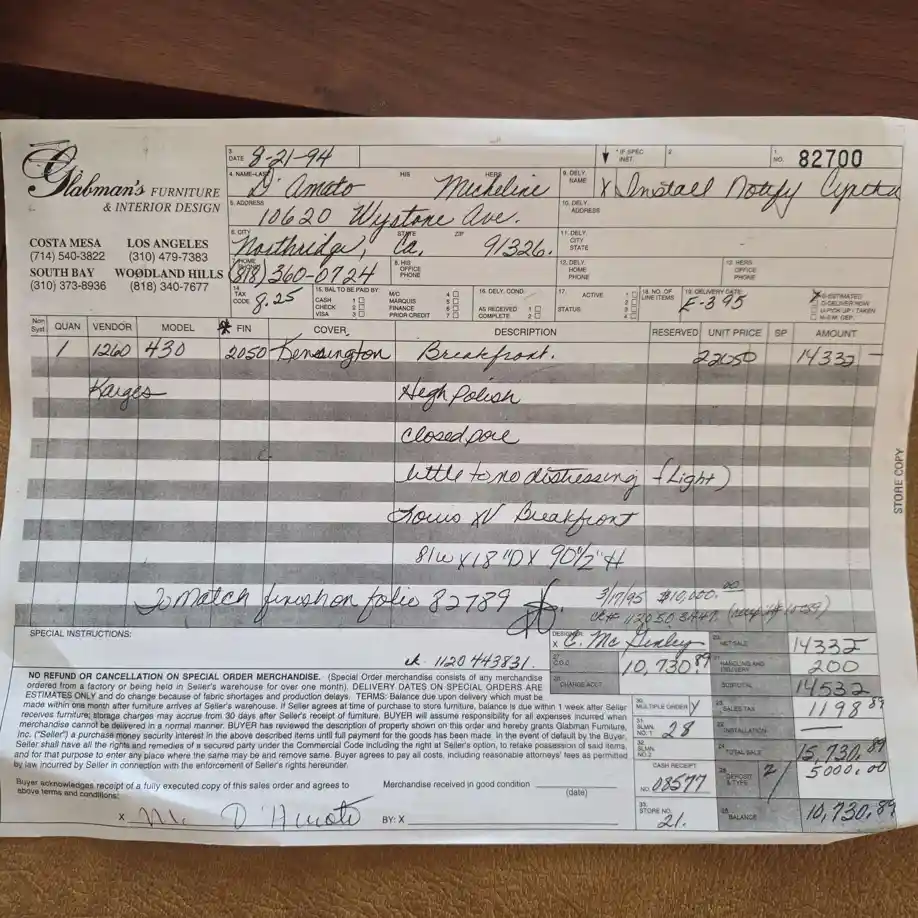 Glabman's FURNITURE
& INTERIOR DESIGN
COSTA MESA LOS ANGELES
(714) 540-3822 (310) 479-7383
SOUTH BAY WOODLAND HILLS
(310) 373-8936 (818) 340-7677
3. DATE 8-21-94
* IF SPEC. INST. 2. 1. NO. 82700
4. NAME-LAST D'Amato HIS HERS Micheline
9. DELY. NAME X Install Notify
5. ADDRESS 10620 Wystone Ave.
10. DELY. ADDRESS
6. CITY Northridge, STATE Ca. ZIP 91326.
11. DELY. CITY STATE
7. HOME PHONE (818) 360-0724 8. HIS OFFICE PHONE
12. DELY. HOME PHONE 13. HERS OFFICE PHONE
14. TAX CODE 8.25
15. BAL TO BE PAID BY:
CASH 1 M/C 4
CHECK 2 MARQUIS 5
VISA 3 FINANCE 6
PRIOR CREDIT 7
16. DELY. COND.
AS RECEIVED 1
COMPLETE 2
17. ACTIVE 1
STATUS
18. NO. OF LINE ITEMS
19. DELIVERY DATE E-395
X E-ESTIMATED
D-DELIVER NOW
U-PICK UP - TAKEN
Non Syst QUAN VENDOR MODEL * FIN COVER DESCRIPTION RESERVED UNIT PRICE SP AMOUNT
1 1260 430 2050 Kensington Breakfront. 22050 14332 —
Karges High Polish
closed pore
little to no distressing (Light)
Louis XV Breakfront
81W X 18"D X 90½"H
To Match finish on folio 82789
3/17/95 $10,000.00
STORE COPY
SPECIAL INSTRUCTIONS:
ck. 1120443831.
DESIGNER X C. McGinley
C.O.D. 10,730.89
CHANGE ACCT.
NET SALE 14332
HANDLING AND DELIVERY 200
SUBTOTAL 14532
SALES TAX 1198 89
INSTALLATION —
TOTAL SALE 15,730.89
DEPOSIT & TYPE 2 5000.00
BALANCE 10,730.89
30. MULTIPLE ORDER Y
31. SLMN. NO. 1 28
32. SLMN. NO. 2
CASH RECEIPT
NO. 08577
33. STORE NO. 21.
NO REFUND OR CANCELLATION ON SPECIAL ORDER MERCHANDISE. (Special Order merchandise consists of any merchandise
ordered from a factory or being held in Seller's warehouse for over one month). DELIVERY DATES ON SPECIAL ORDERS ARE
ESTIMATES ONLY and do change because of fabric shortages and production delays. TERMS: Balance due upon delivery which must be
made within one month after furniture arrives at Seller's warehouse. If Seller agrees at time of purchase to store furniture, balance is due within 1 week after Seller
receives furniture; storage charges may accrue from 30 days after Seller's receipt of furniture. BUYER will assume responsibility for all expenses incurred when
merchandise cannot be delivered in a normal manner. BUYER has reviewed the description of property shown on this order and hereby grants Glabman Furniture,
Inc. ("Seller") a purchase money security interest in the above described items until full payment for the goods has been made. In the event of default by the Buyer,
Seller shall have all the rights and remedies of a secured party under the Commercial Code including the right at Seller's option, to retake possession of said items,
and for that purpose to enter any place where the same may be and remove same. Buyer agrees to pay all costs, including reasonable attorneys' fees as permitted
by law incurred by Seller in connection with the enforcement of Seller's rights hereunder.
Buyer acknowledges receipt of a fully executed copy of this sales order and agrees to
above terms and conditions:
Merchandise received in good condition
(date)
X M. D'Amato BY: X